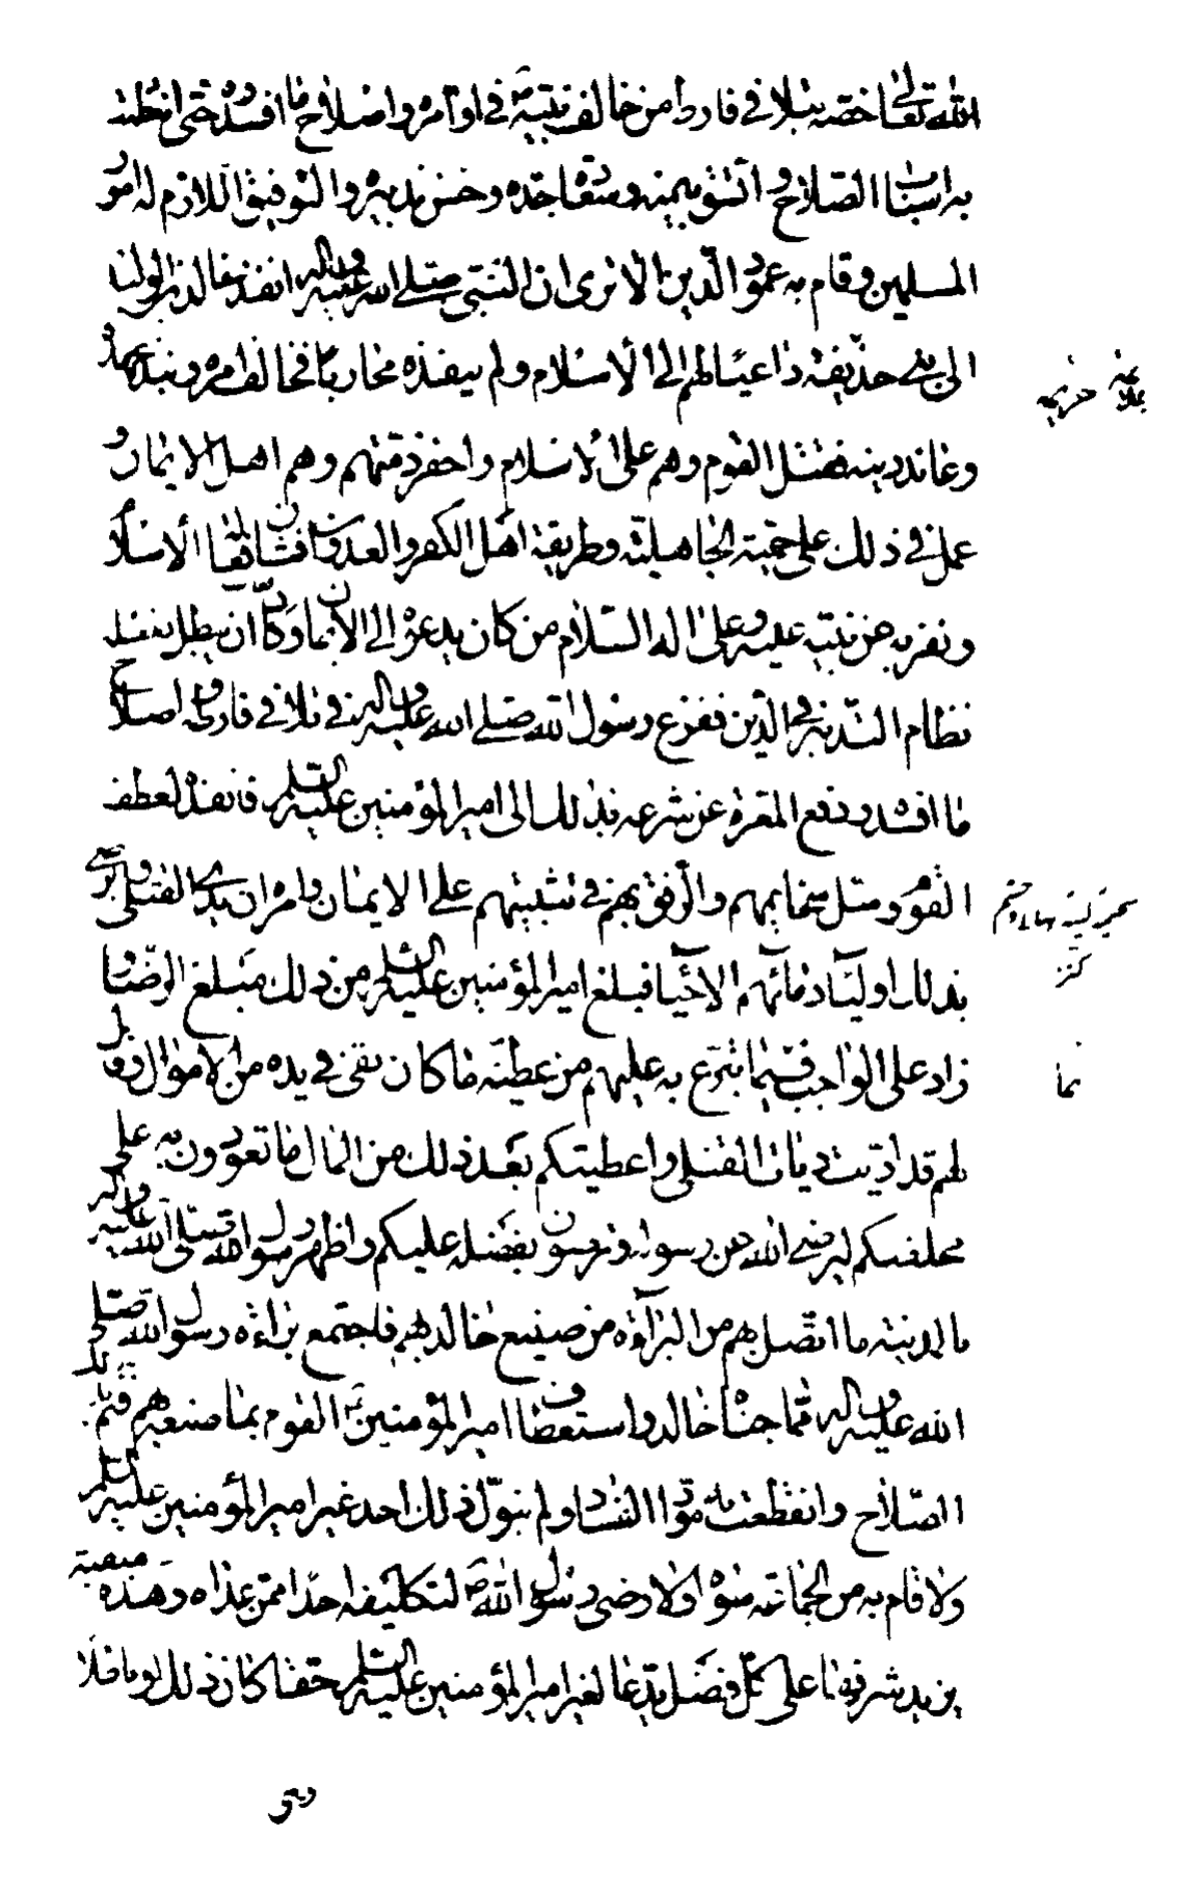 الله تعالى اختصه بتلافي فارط من خالف نبيه ص في اوامره واصلاح ما افسده حتى انتظمت
به اسباب الصلاح واتسق بيمنه وسعادة جده وحسن تدبيره والتوفيق اللازم له امور
المسلمين وقام به عمود الدين الا ترى ان النبي صلى الله عليه واله انفذ خالد بن الوليد
الى بني حذيفة داعيا لهم الى الاسلام ولم ينفذه محاربا فخالف امره ونبذ عهده
وعاند دينه فقتل القوم وهم على الاسلام واخفر ذمتهم وهم اهل الايمان و
عمل في ذلك على حمية الجاهلية وطريقة اهل الكفر والعدوان فشان فعاله الاسلام
ونفر به عن نبيه عليه وعلى اله السلام من كان يدعوه الى الايمان وكاد ان يبطل بفعله
نظام التدبير في الدين ففزع رسول الله صلى الله عليه واله في تلافي فارطه واصلاح
ما افسده ودفع المعرة عن شرعه بذلك الى امير المؤمنين عليه السلم فانفذه لعطف
القوم وسل سخايمهم والرفق بهم في تثبيتهم على الايمان وامره ان يدي القتلى ويرضي
بذلك اولياء دمائهم الاحياء فبلغ امير المؤمنين عليه السلم من ذلك مبلغ الرضا و
زاد على الواجب فيما تبرع به عليهم من عطية ما كان بقى في يده من الاموال وقال
لهم قد اديت ديات القتلى واعطيتكم بعد ذلك من المال ما تعودون به على
مخلفيكم ليرضى الله عن رسوله وترضون بفضله عليكم واظهر رسول الله صلى الله عليه واله
بالمدينة ما اتصل بهم من البراءة من صنيع خالد بهم فاجتمع براءة رسول الله صلى
الله عليه واله مما جناه خالد واستعطاف امير المؤمنين ع القوم بما صنعه بهم فتم بذلك
الصلاح وانقطعت به مواد الفساد ولم يتول ذلك احد غير امير المؤمنين عليه السلم
ولا قام به من الجماعة سواه ولا رضى رسول الله ص لتكليفه احدا ممن عداه وهذه منقبة
يزيد شرفها على كل فضل يدعا لغير امير المؤمنين عليه السلم حقا كان ذلك او باطلا